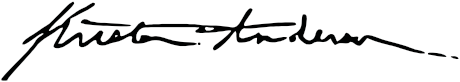 Kristen Anderson